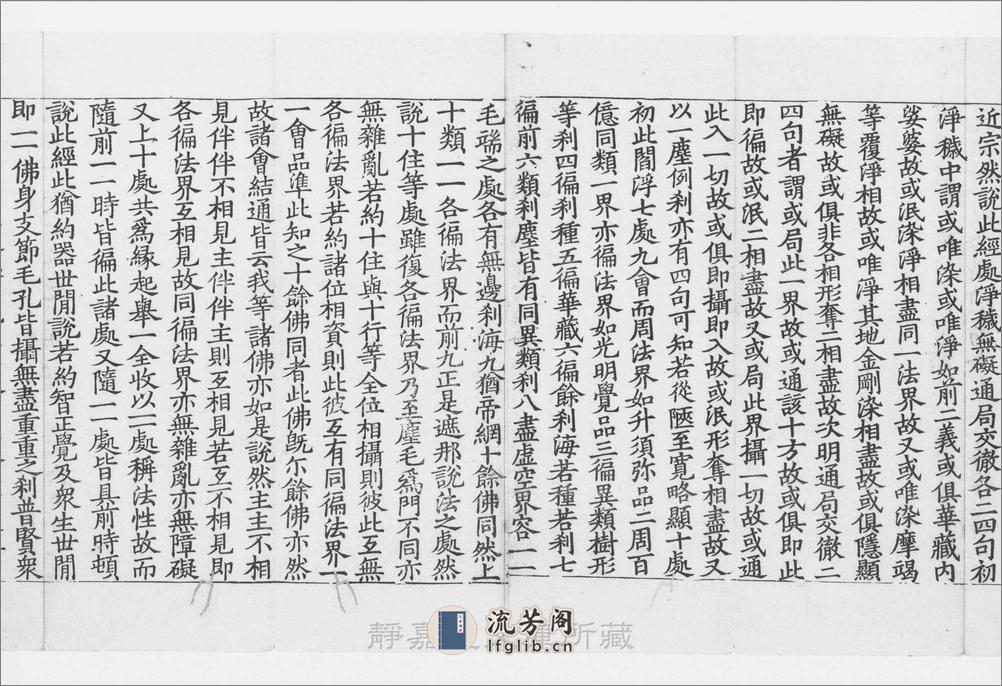 近宗然說此經處淨穢無礙通局交徹各二四句初
淨穢中謂或唯染或唯淨如前二義或俱華藏內
娑婆故或泯染淨相盡同一法界故又或唯染摩竭
等覆淨相故或唯淨其地金剛染相盡故或俱隱顯
無礙故或俱非各相形奪二相盡故次明通局交徹二
四句者謂或局此一界故或通該十方故或俱即此
即徧故或泯二相盡故又或局此界攝一切故或通
此入一切故或俱即攝即入故或泯形奪相盡故又
以一塵例剎亦有四句可知若從陿至寬略顯十處
初此閻浮七處九會而周法界如升須弥品二周百
億同類一界亦徧法界如光明覺品三徧異類樹形
等剎四徧剎種五徧華藏六徧餘剎海若種若剎七
徧前六類剎塵皆有同異類剎八盡虛空界容一一
毛端之處各有無邊剎海九猶帝網十餘佛同然上
十類一一各徧法界而前九正是遮那說法之處然
說十住等處雖復各徧法界乃至塵毛為門不同亦
無雜亂若約十住與十行等全位相攝則彼此互無
各徧法界若約諸位相資則此彼互有同徧法界一
一會品準此知之十餘佛同者此佛旣尒餘佛亦然
故諸會結通皆云我等諸佛亦如是說然主主不相
見伴伴不相見主伴伴主則互相見若互不相見即
各徧法界互相見故同徧法界亦無雜亂亦無障礙
又上十處共為緣起舉一全收以一一處稱法性故而
隨前一一時皆徧此諸處又隨一一處皆具前時頓
說此經此猶約器世閒說若約智正覺及眾生世閒
即一一佛身支節毛孔皆攝無盡重重之剎普賢眾
靜嘉堂文庫所藏
流芳阁
lfglib.cn